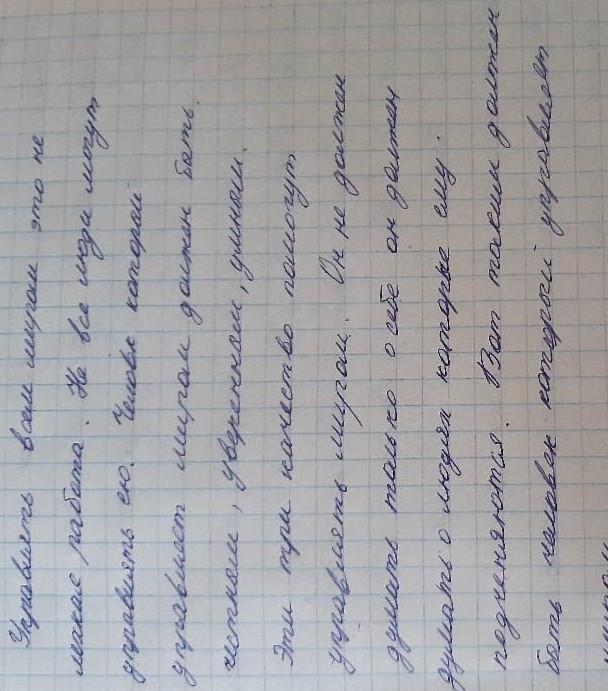 Управлять всем миром это не
легкая работа. Не все люди могут
управлять ею. Человек который
управляет миром должен быть
честным, уверенным, умным.
Эти три качество помогут
управлять миром. Он не должен
думать только о себе он должен
думать о людях которые ему
подченяются. Вот таким должен
быть человек который управляет